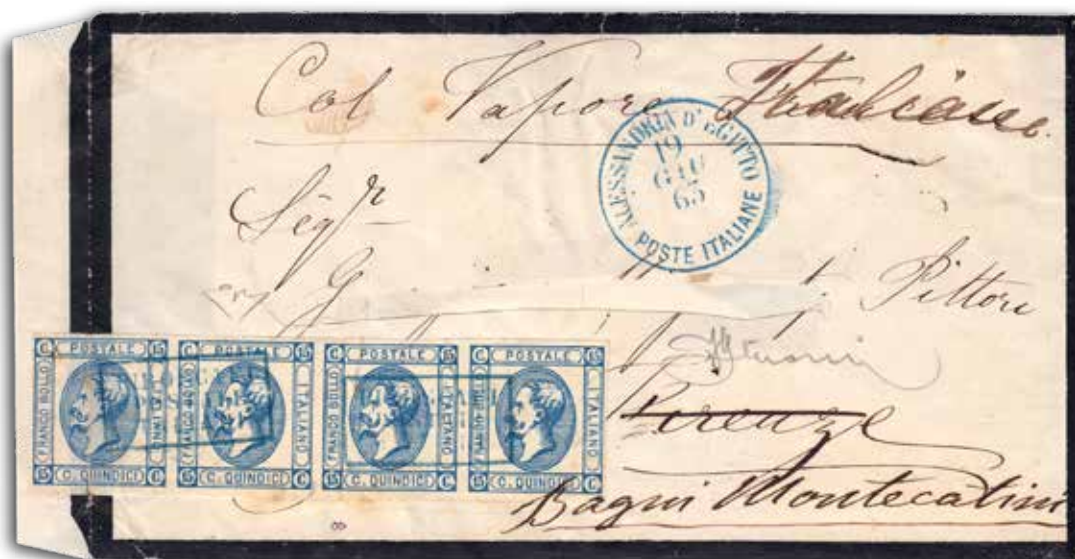 Col Vapore Italiano
ALESSANDRIA D'EGITTO
19
GIU
65
POSTE ITALIANE
Sigr
G
Pittore
Firenze
Bagni Montecatini
C POSTALE 15
FRANCO BOLLO
ITALIANO
15 C. QUINDICI C
C POSTALE 15
FRANCO BOLLO
ITALIANO
15 C. QUINDICI C
C POSTALE 15
FRANCO BOLLO
ITALIANO
15 C. QUINDICI C
C POSTALE 15
FRANCO BOLLO
ITALIANO
15 C. QUINDICI C